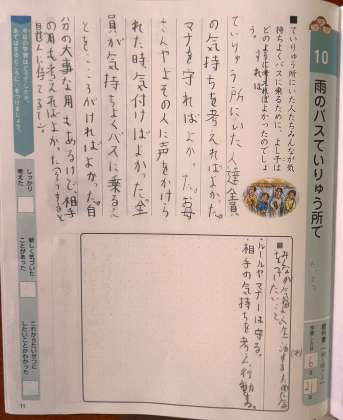 10
雨のバスていりゅう所で
■ていりゅう所にいた人たちみんなが気
持ちよくバスに乗るために、よし子は
どのように考えればよかったのでしょ
う。
ていりゅう所にいた人達全員
の気持ちを考えればよかった。
マナーを守ればよかった。お母
さんやよその人に声をかけら
れた時気付けばよかった。全
員が気持ちよくバスに乗るこ
とを心がければよかった。自
分の大事な用もあるけど相手
の用も考えればよかった。
ルールやマナーは守る。
相手の気持ちを考え行動する。
今日の学習はどうでしたか。
あてはまるところに○をつけましょう。
しっかり
考えた
新しく気づいた
ことがあった
これからたいせつに
したいことがわかった
11